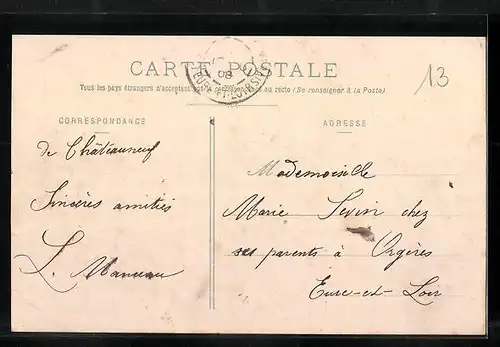 CARTE POSTALE
13
08
EURE-ET-LOIR
Tous les pays étrangers n'acceptant pas la correspondance au recto (Se renseigner à la Poste)
CORRESPONDANCE
ADRESSE
de Châteauneuf
Sincères amitiés
L. Manceau
Mademoiselle
Marie Sevin chez
ses parents à Orgères
Eure-et-Loir